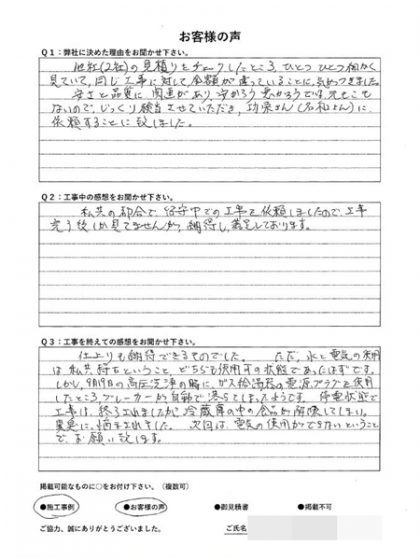 お客様の声
Q1：弊社に決めた理由をお聞かせ下さい。
他社(2社)の見積りをチェックしたところ、ひとつひとつ細かく
見ていて、同じ工事に対して金額が違っていることに、気がつきました。
安さと品質に関連があり、安かろう悪かろうでは元もこも
ないので、じっくり検討させていただき、功栄さん(名札さん)に
依頼することに致しました。
Q2：工事中の感想をお聞かせ下さい。
私共の都合で留守中での工事を依頼しましたので、工事
完了後しか見てませんが、納得し、満足しております。
Q3：工事を終えての感想をお聞かせ下さい。
仕上りも納得できるものでした。 ただ、水と電気の使用
は私共持ちということ、どちらも使用可の状態であったはずです。
しかし、9月19日の高圧洗浄の時に、ガス給湯器の電源プラグを使用
したところ、ブレーカーが自動で落ちてしまったそうです。 停電状態で
工事は、終了されましたが、冷蔵庫の中の食品が解凍してしまい、
業者に、 次回は、電気の使用ができないということ
で、お願い致します。
掲載可能なものに○をお付け下さい。（複数可）
●施工事例 ●お客様の声 ●御見積書 ●掲載不可
ご協力、誠にありがとうございました。 ご氏名